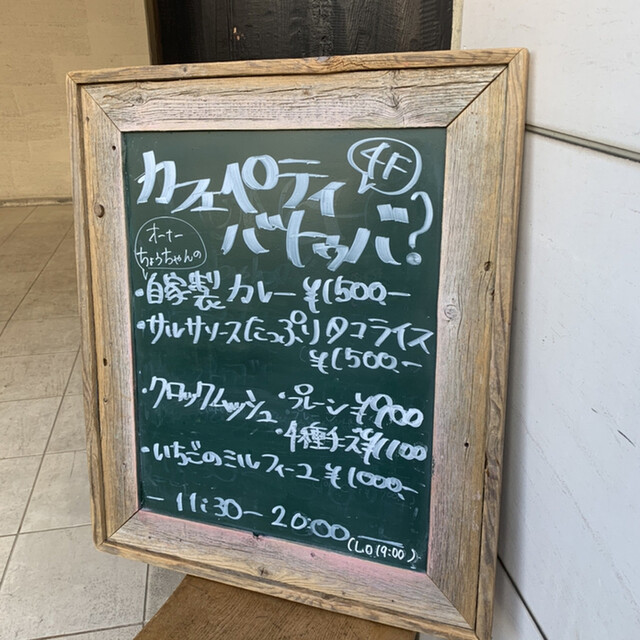 カフェペティ
4F
バトゥバ?
オーナー
ちょうちゃんの
・自家製カレー ¥1500.-
・サルサソースたっぷりタコライス
¥1500.-
・クロックムッシュ・プレーン ¥900
・4種チーズ ¥1100
・いちごのミルフィーユ ¥1000.-
- 11:30 - 20:00
(LO 19:00)